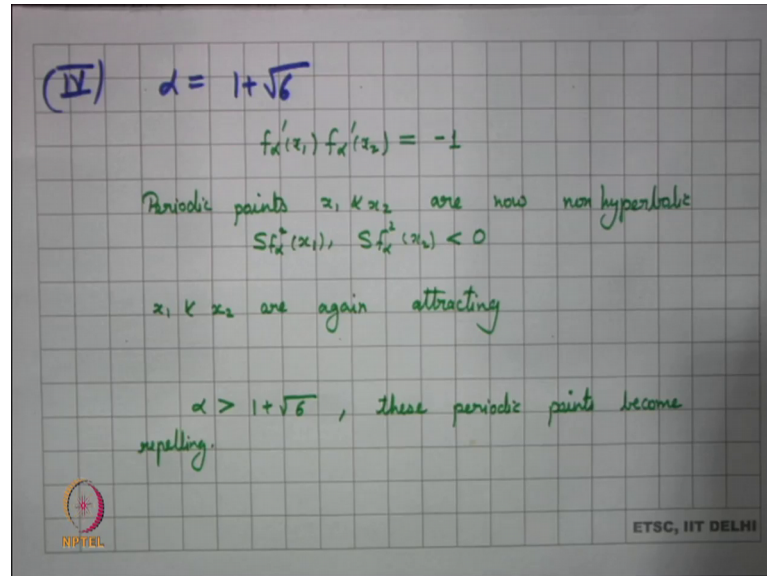 (IV) α = 1+√6
fα'(x₁) fα'(x₂) = -1
Periodic points x₁ & x₂ are now nonhyperbolic
Sfα²(x₁), Sfα²(x₂) < 0
x₁ & x₂ are again attracting
α > 1+√6 , these periodic points become
repelling.
NPTEL
ETSC, IIT DELHI